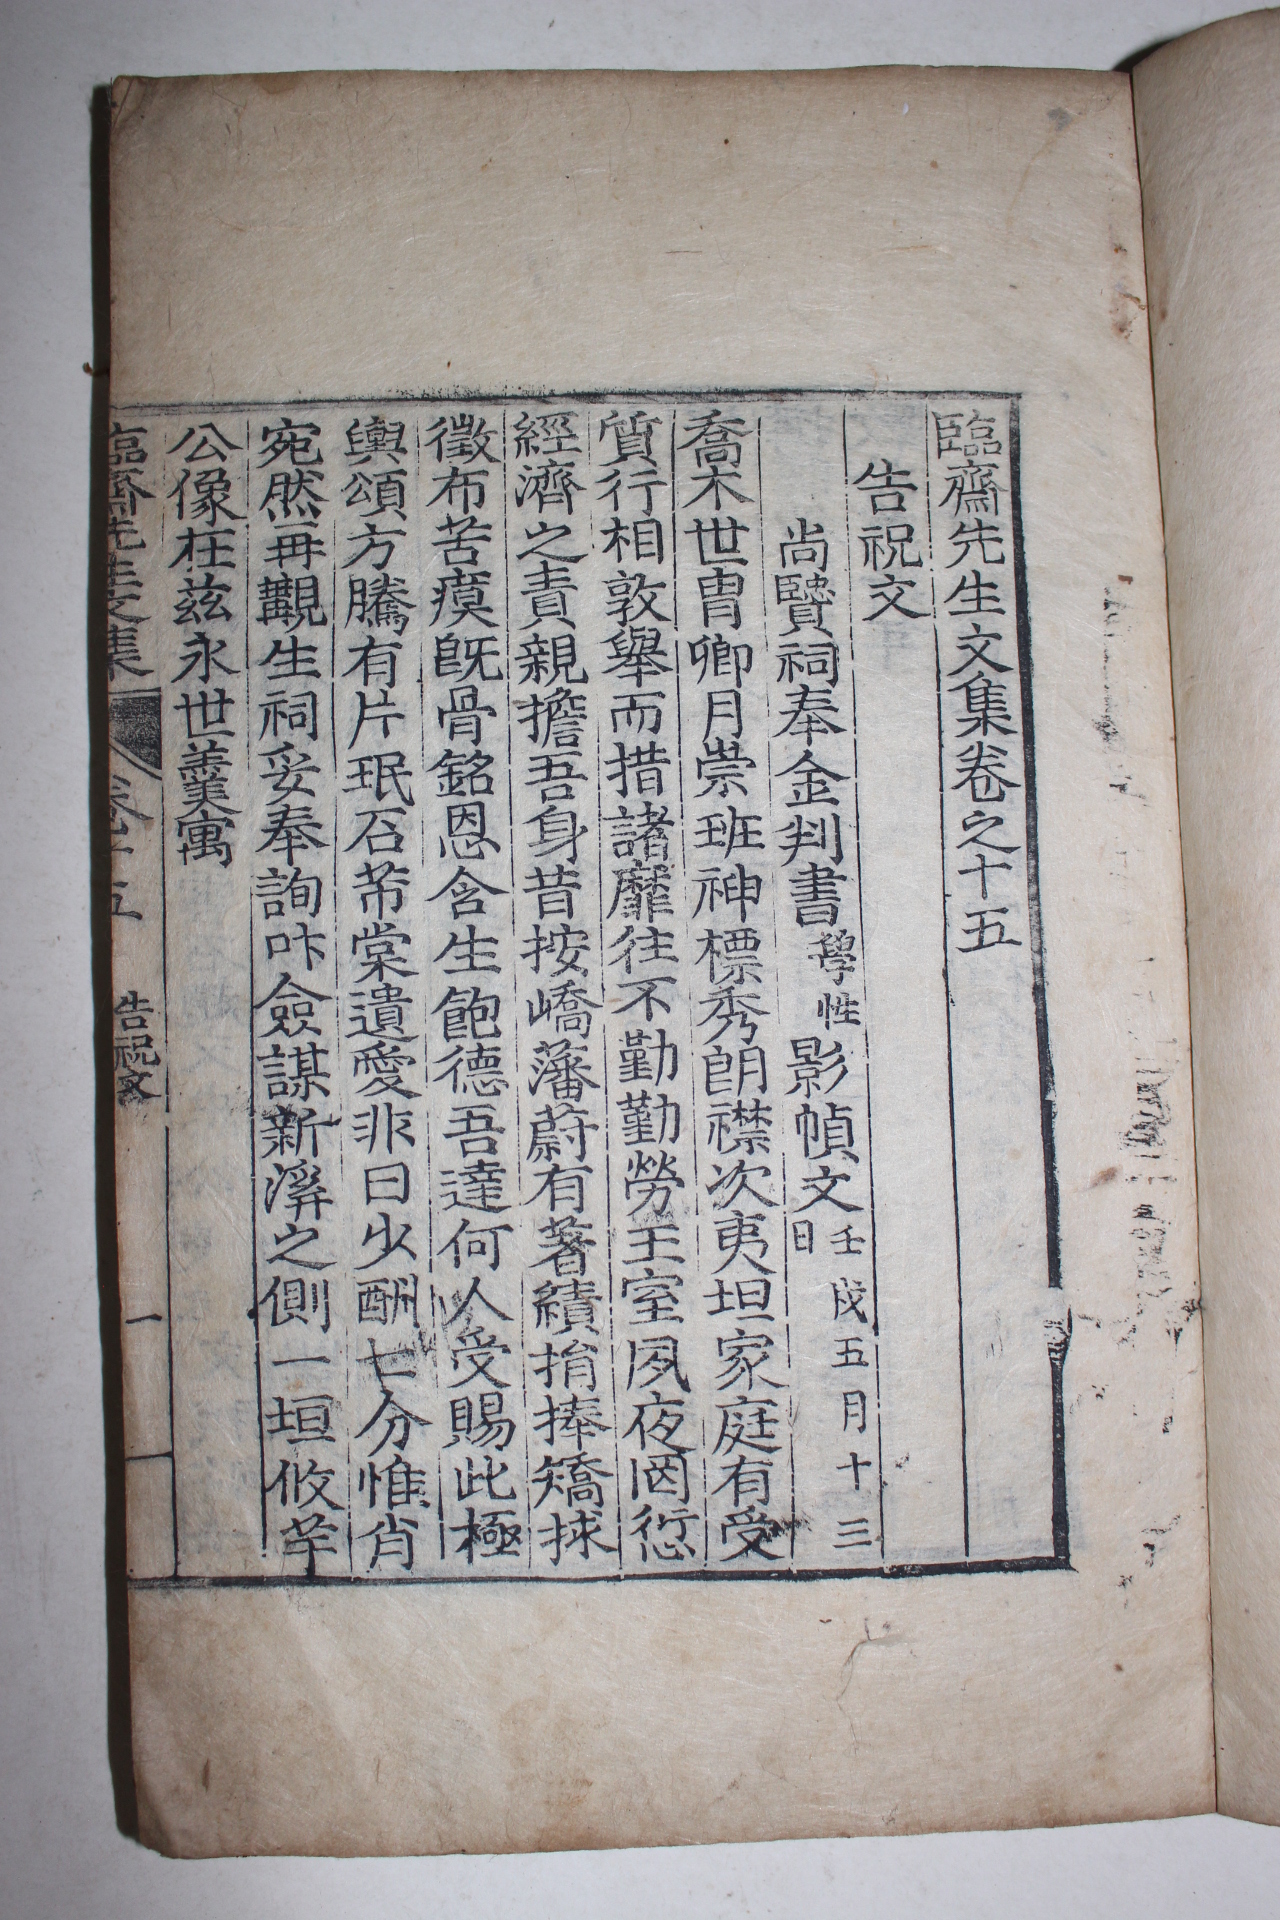 臨齋先生文集卷之十五
告祝文
尚賢祠奉金判書學性影幀文壬戌五月十三日
喬木世冑卿月崇班神標秀朗襟次夷坦家庭有受
質行相敦舉而措諸靡往不勤勤勞王室夙夜罔愆
經濟之責親擔吾身昔按嶠藩蔚有著績捐捧矯捄
徵布苦瘼旣骨銘恩含生飽德吾達何人受賜此極
輿頌方騰有片珉石芾棠遺愛非曰少酬七分惟肖
宛然再覿生祠妥奉詢咋僉謀新溪之側一垣攸芋
公像在玆永世羹寓
臨齋先生文集 卷十五 告祝文 一